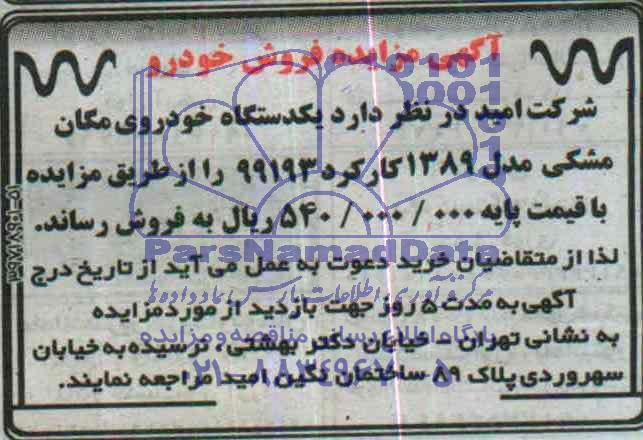 آگهی مزایده فروش خودرو
شرکت امید در نظر دارد یکدستگاه خودروی مگان
مشکی مدل ۱۳۸۹ کارکرد ۹۹۱۹۳ را از طریق مزایده
با قیمت پایه ۵۴۰/۰۰۰/۰۰۰ ریال به فروش رساند.
ParsNamadData
لذا از متقاضیان خرید دعوت به عمل می آید از تاریخ درج
مرکز فرآوری اطلاعات پارس نماد داده ها
آگهی به مدت ۵ روز جهت بازدید از مورد مزایده
پایگاه اطلاع رسانی مناقصه و مزایده
به نشانی تهران - خیابان دکتر بهشتی، نرسیده به خیابان
سهروردی پلاک ۸۹ ساختمان نگین امید مراجعه نمایند.